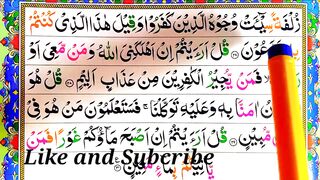 زُلْفَةً سِيْٓـَٔتْ وُجُوْهُ الَّذِيْنَ كَفَرُوْا وَقِيْلَ هٰذَا الَّذِيْ كُنْتُمْ
تَدَّعُوْنَ قُلْ اَرَءَيْتُمْ اِنْ اَهْلَكَنِيَ اللّٰهُ وَمَنْ مَّعِيَ اَوْ
فَمَنْ يُّجِيْرُ الْكٰفِرِيْنَ مِنْ عَذَابٍ اَلِيْمٍ قُلْ هُوَ
اٰمَنَّا بِهٖ وَعَلَيْهِ تَوَكَّلْنَا فَسَتَعْلَمُوْنَ مَنْ هُوَ فِيْ
مُّبِيْنٍ قُلْ اَرَءَيْتُمْ اِنْ اَصْبَحَ مَآؤُكُمْ غَوْرًا فَمَنْ
يَّاْتِيْكُمْ بِمَآءٍ مَّعِيْنٍ
Like and Subcribe